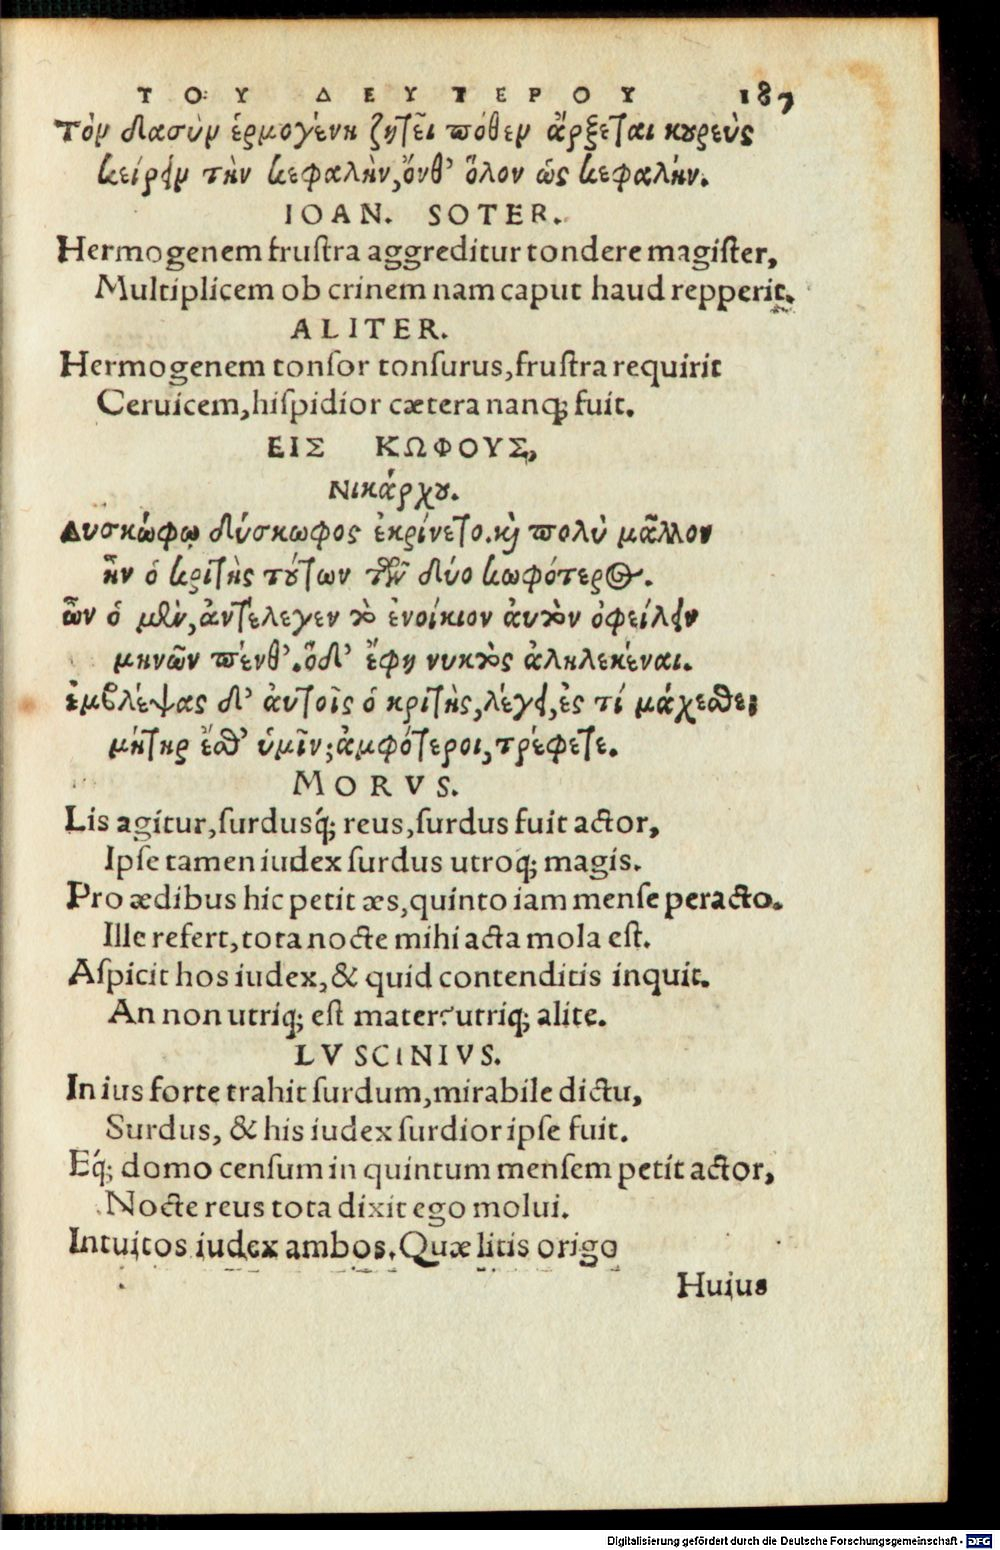 ΤΟΥ ΔΕΥΤΕΡΟΥ 187
Τὸν δασὺν ἑρμογένη ζητεῖ πόθεν ἄρξεται κουρεὺς
κείρειν τὴν κεφαλὴν, ὄνθ’ ὅλον ὡς κεφαλήν.
IOAN. SOTER.
Hermogenem fruſtra aggreditur tondere magiſter,
Multiplicem ob crinem nam caput haud repperit.
ALITER.
Hermogenem tonſor tonſurus, fruſtra requirit
Ceruicem, hiſpidior cætera nanq; fuit.
ΕΙΣ ΚΩΦΟΥΣ,
Νικάρχου.
Δυσκώφῳ δύσκωφος ἐκρίνετο. καὶ πολὺ μᾶλλον
ἦν ὁ κριτὴς τούτων τῶν δύο κωφότερος.
ὧν ὁ μὲν, ἀντέλεγεν τὸ ἐνοίκιον ἀυτὸν ὀφείλειν
μηνῶν πένθ’. ὁδ’ ἔφη νυκτὸς ἀληλεκέναι.
ἐμβλέψας δ’ ἀυτοῖς ὁ κριτὴς, λέγει, ἐς τί μάχεσθε;
μήτηρ ἔσθ’ ὑμῖν; ἀμφότεροι, τρέφετε.
MORVS.
Lis agitur, ſurdusq́; reus, ſurdus fuit actor,
Ipſe tamen iudex ſurdus utroq; magis.
Pro ædibus hic petit æs, quinto iam menſe peracto.
Ille refert, tota nocte mihi acta mola eſt.
Aſpicit hos iudex, & quid contenditis inquit.
An non utriq; eſt mater? utriq; alite.
LVSCINIVS.
In ius forte trahit ſurdum, mirabile dictu,
Surdus, & his iudex ſurdior ipſe fuit.
Eq́; domo cenſum in quintum menſem petit actor,
Nocte reus tota dixit ego molui.
Intuitos iudex ambos. Quæ litis origo
Huius
Digitalisierung gefördert durch die Deutsche Forschungsgemeinschaft - DFG